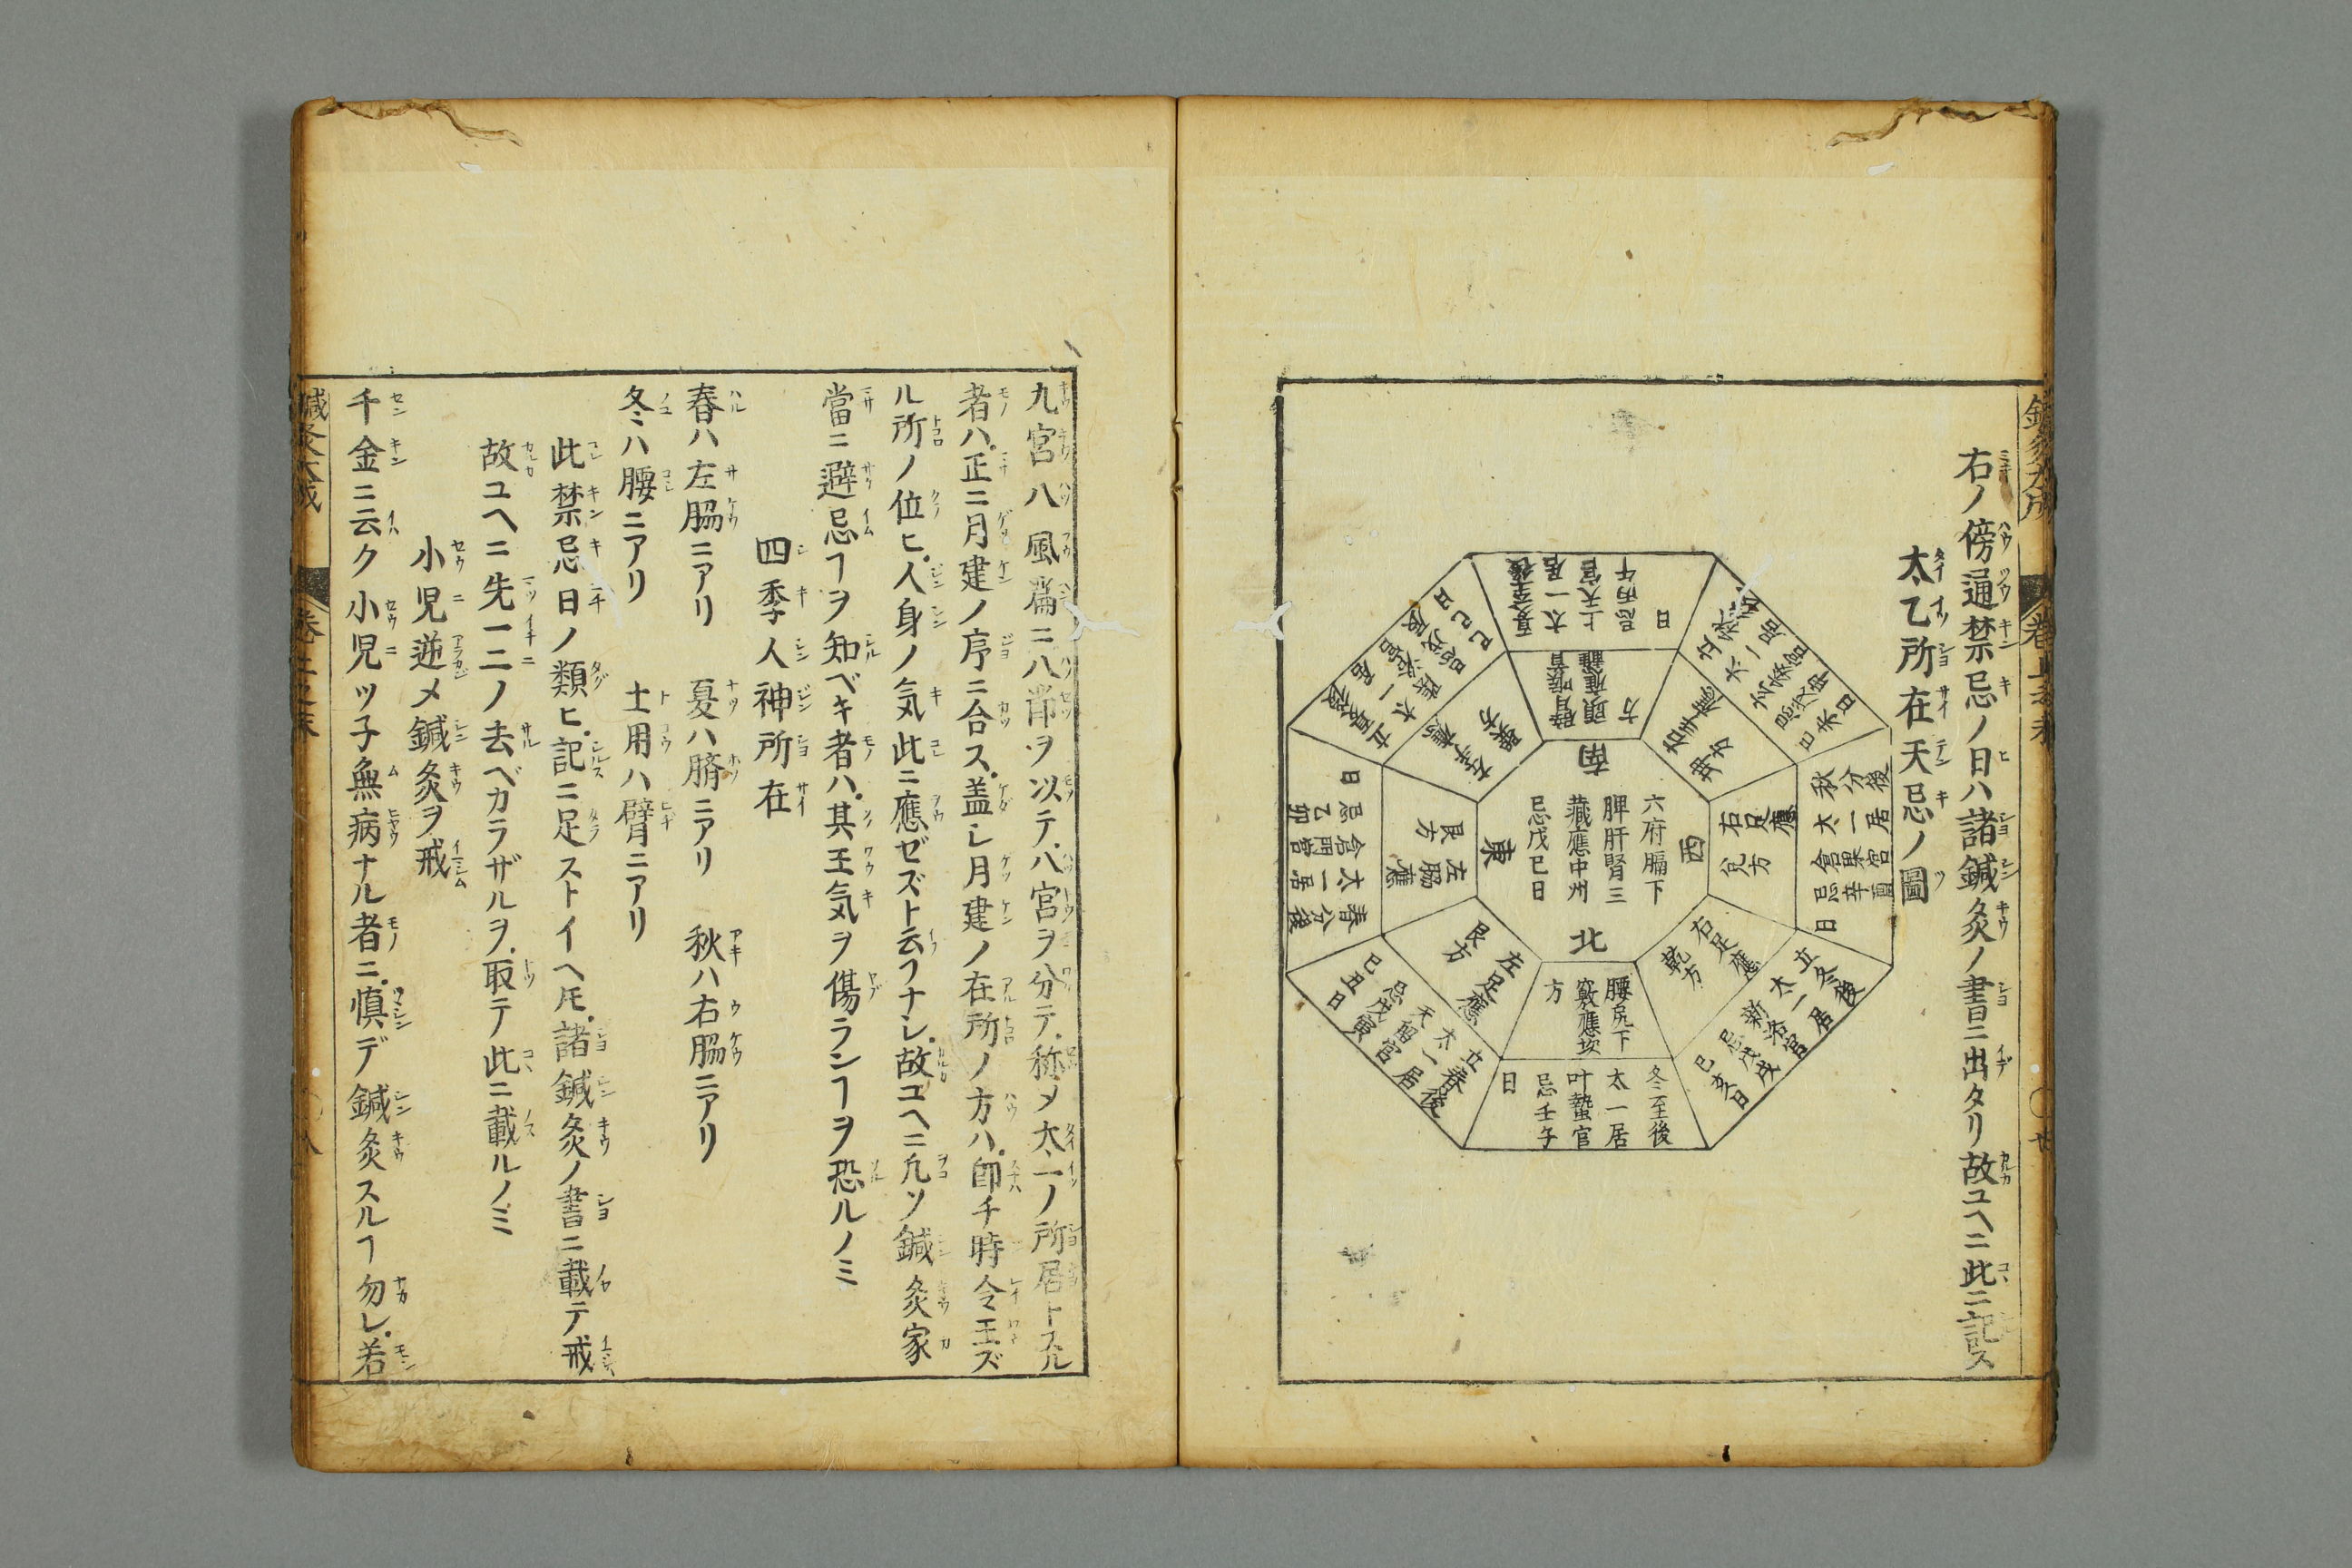 右ノ傍通禁忌ノ日ハ諸鍼灸ノ書ニ出タリ故ユヘニ此ニ記ス
太乙所在天忌ノ圖
南
西
北
東
六府膈下
脾肝腎三
藏應中州
忌戊己日
夏至後
太一居
上天宮
忌丙午
日
頭應離
方
秋分後
太一居
倉果宮
忌辛酉
日
右足應
兌方
立冬後
太一居
新洛宮
忌戊戌
己亥日
右足應
乾方
冬至後
太一居
叶蟄宮
忌壬子
日
腰尻下
竅應坎
方
立春後
太一居
天留宮
忌戊寅
己丑日
左足應
艮方
春分後
太一居
倉門宮
忌乙卯
日
左脇應
九宮八風篇ニ八節ヲ以テ八宮ヲ分テ称メ太一ノ所居トスル
者ハ正ニ月建ノ序ニ合ス盖シ月建ノ在所ノ方ハ即チ時令王ズ
ル所ノ位ヒ人身ノ気此ニ應ゼズト云フナシ故ユヘニ凢ソ鍼灸家
當ニ避忌ヿヲ知ベキ者ハ其王気ヲ傷ランヿヲ恐ルノミ
四季人神所在
春ハ左脇ニアリ　夏ハ臍ニアリ　秋ハ右脇ニアリ
冬ハ腰ニアリ　土用ハ臂ニアリ
此禁忌日ノ類ヒ記ニ足ストイヘ𪜈諸鍼灸ノ書ニ載テ戒
故ユヘニ先一二ノ去ベカラザルヲ取テ此ニ載ルノミ
小児逆メ鍼灸ヲ戒
千金ニ云ク小児ツ子無病ナル者ニ慎デ鍼灸スルヿ勿レ若